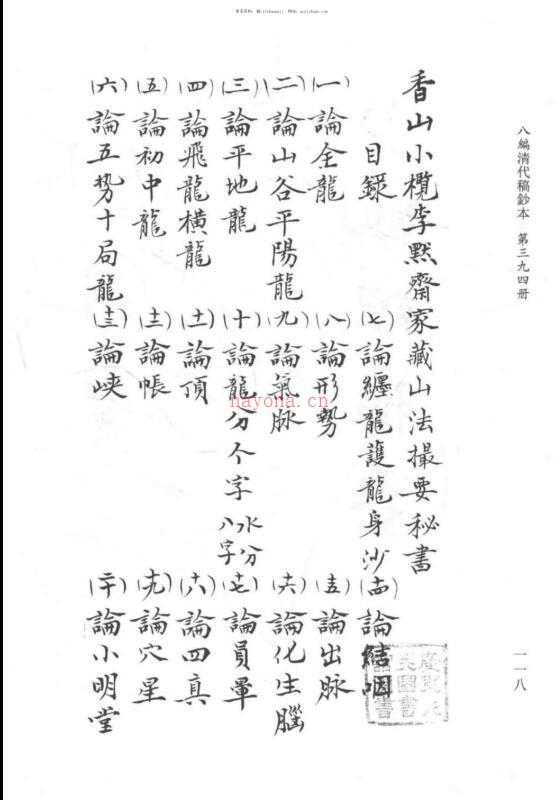 八編清代稿鈔本 第三九四册
一一八
香山小欖李默齋家藏山法撮要秘書
目錄
(一)論全龍
(二)論山谷平陽龍
(三)論平地龍
(四)論飛龍横龍
(五)論初中龍
(六)論五势十局龍
(七)論纏龍護龍身沙
(八)論形勢
(九)論氣脉
(十)論龍分个字 水分八字
(十一)論頂
(十二)論帳
(十三)論峡
(十四)論結咽
(十五)論出脉
(十六)論化生腦
(十七)論員暈
(十八)論四真
(十九)論穴星
(二十)論小明堂
nayona.cn